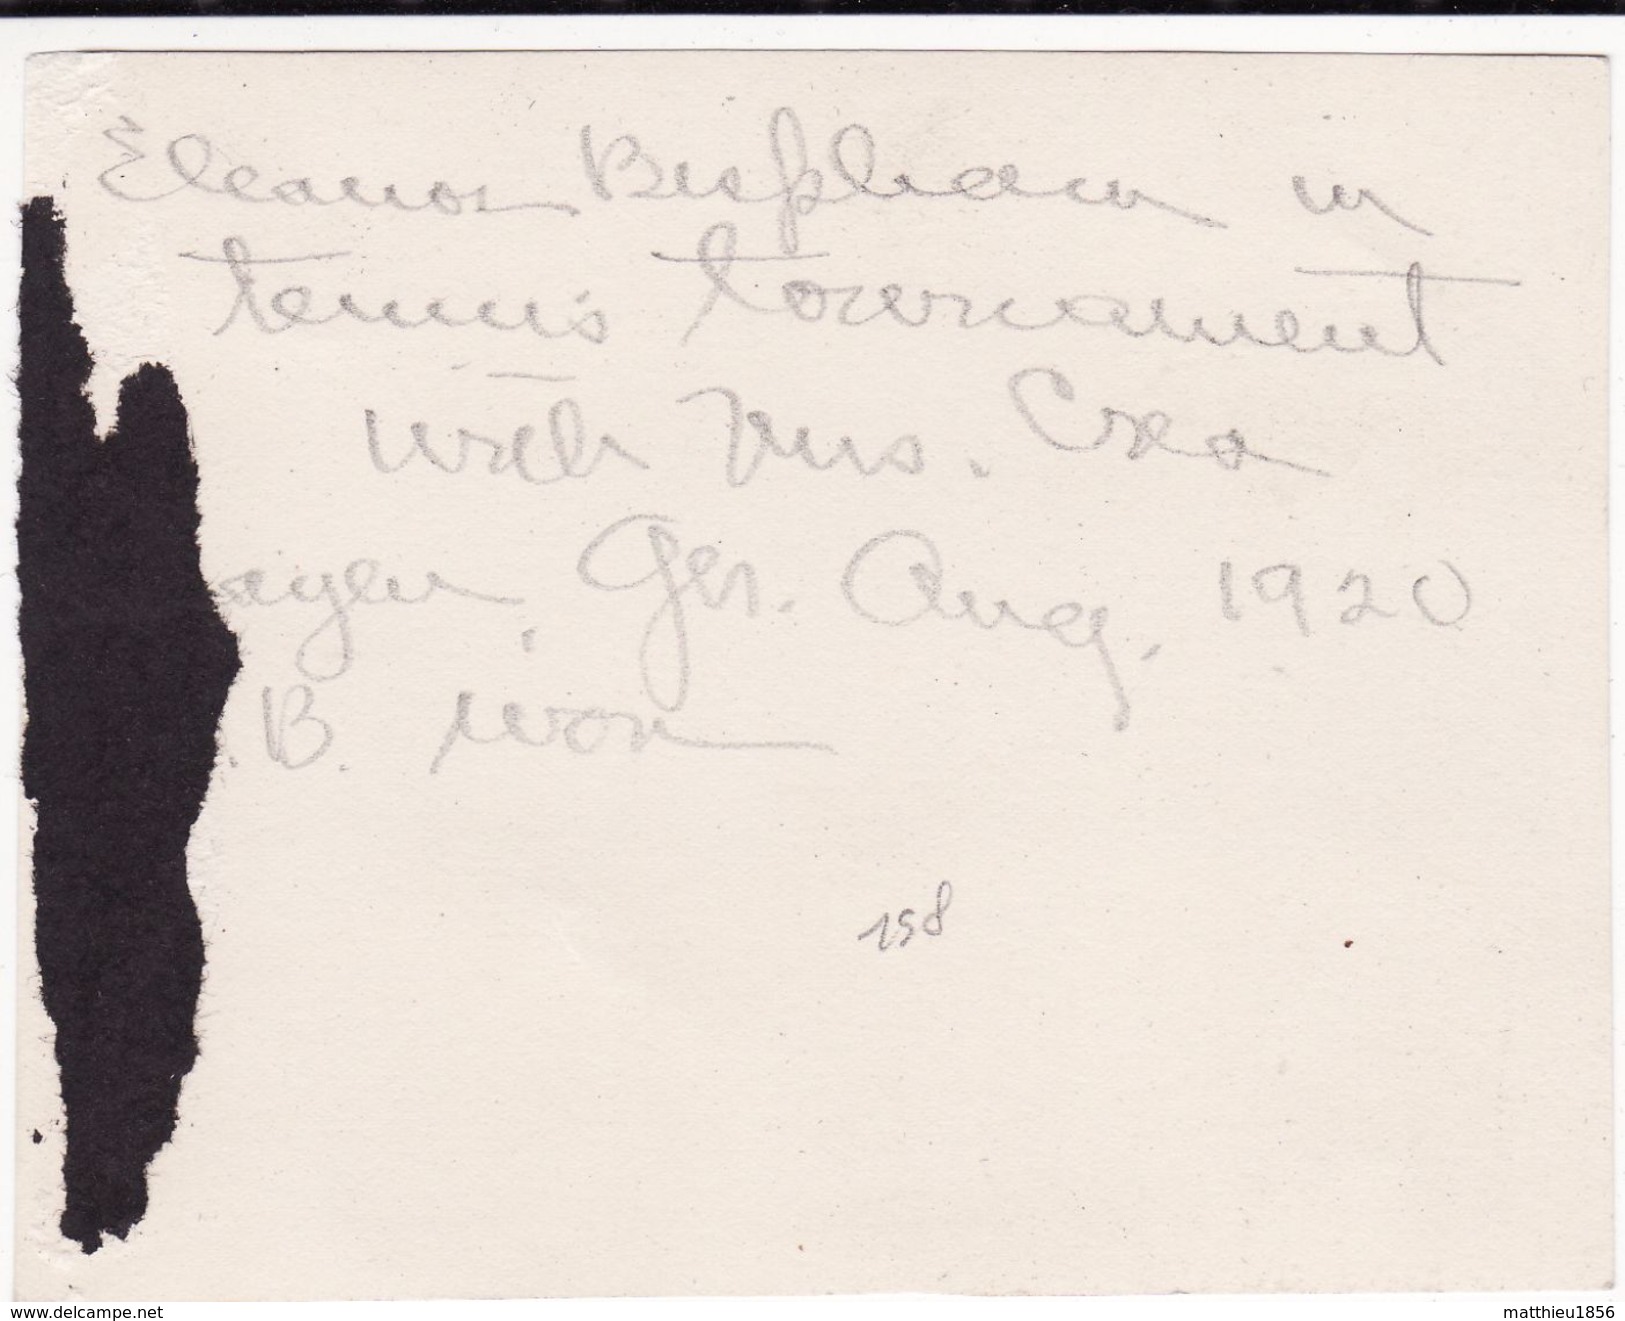 Eleanor Bispham in
tennis tournament
with Mrs. Crea
ayen, Ger. Aug. 1920
.B. won
158
www.delcampe.net
matthieu1856